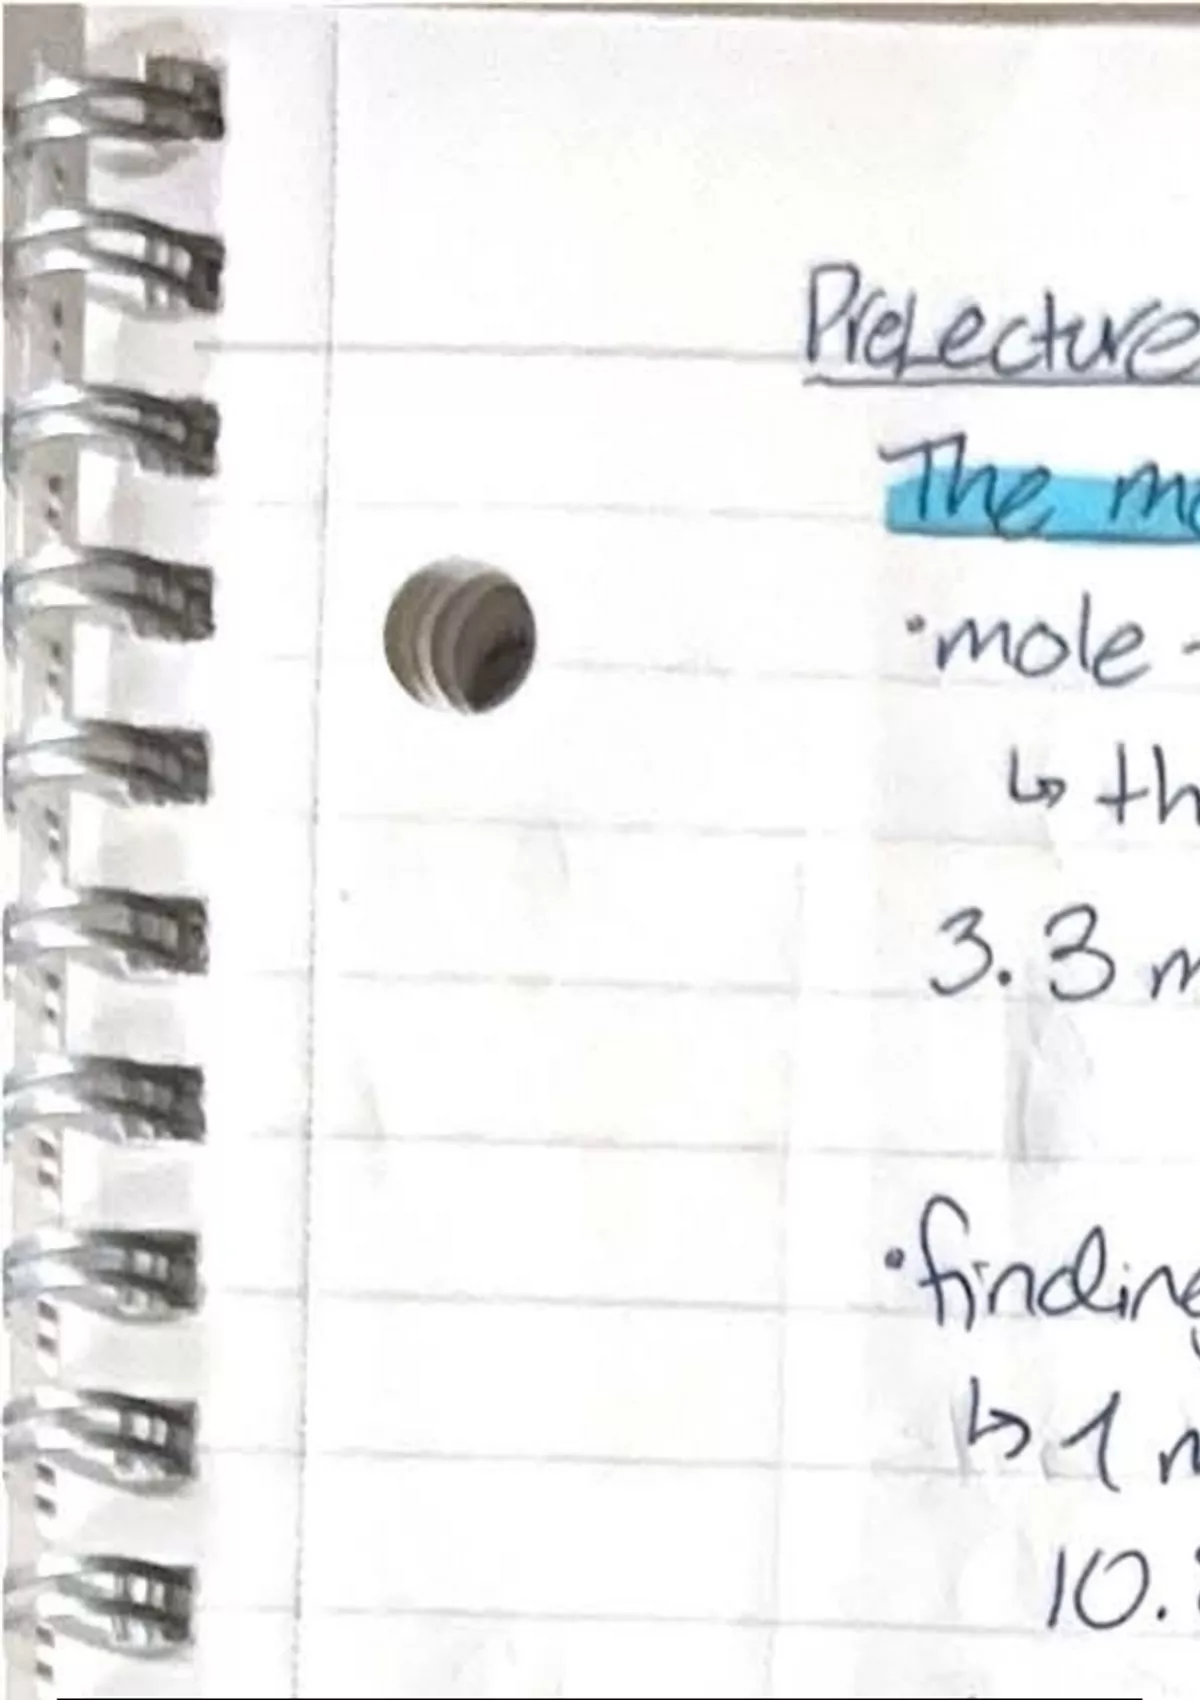 PreLecture
The mo
•mole -
↳ th
3.3 m
•finding
↳ 1 m
10.